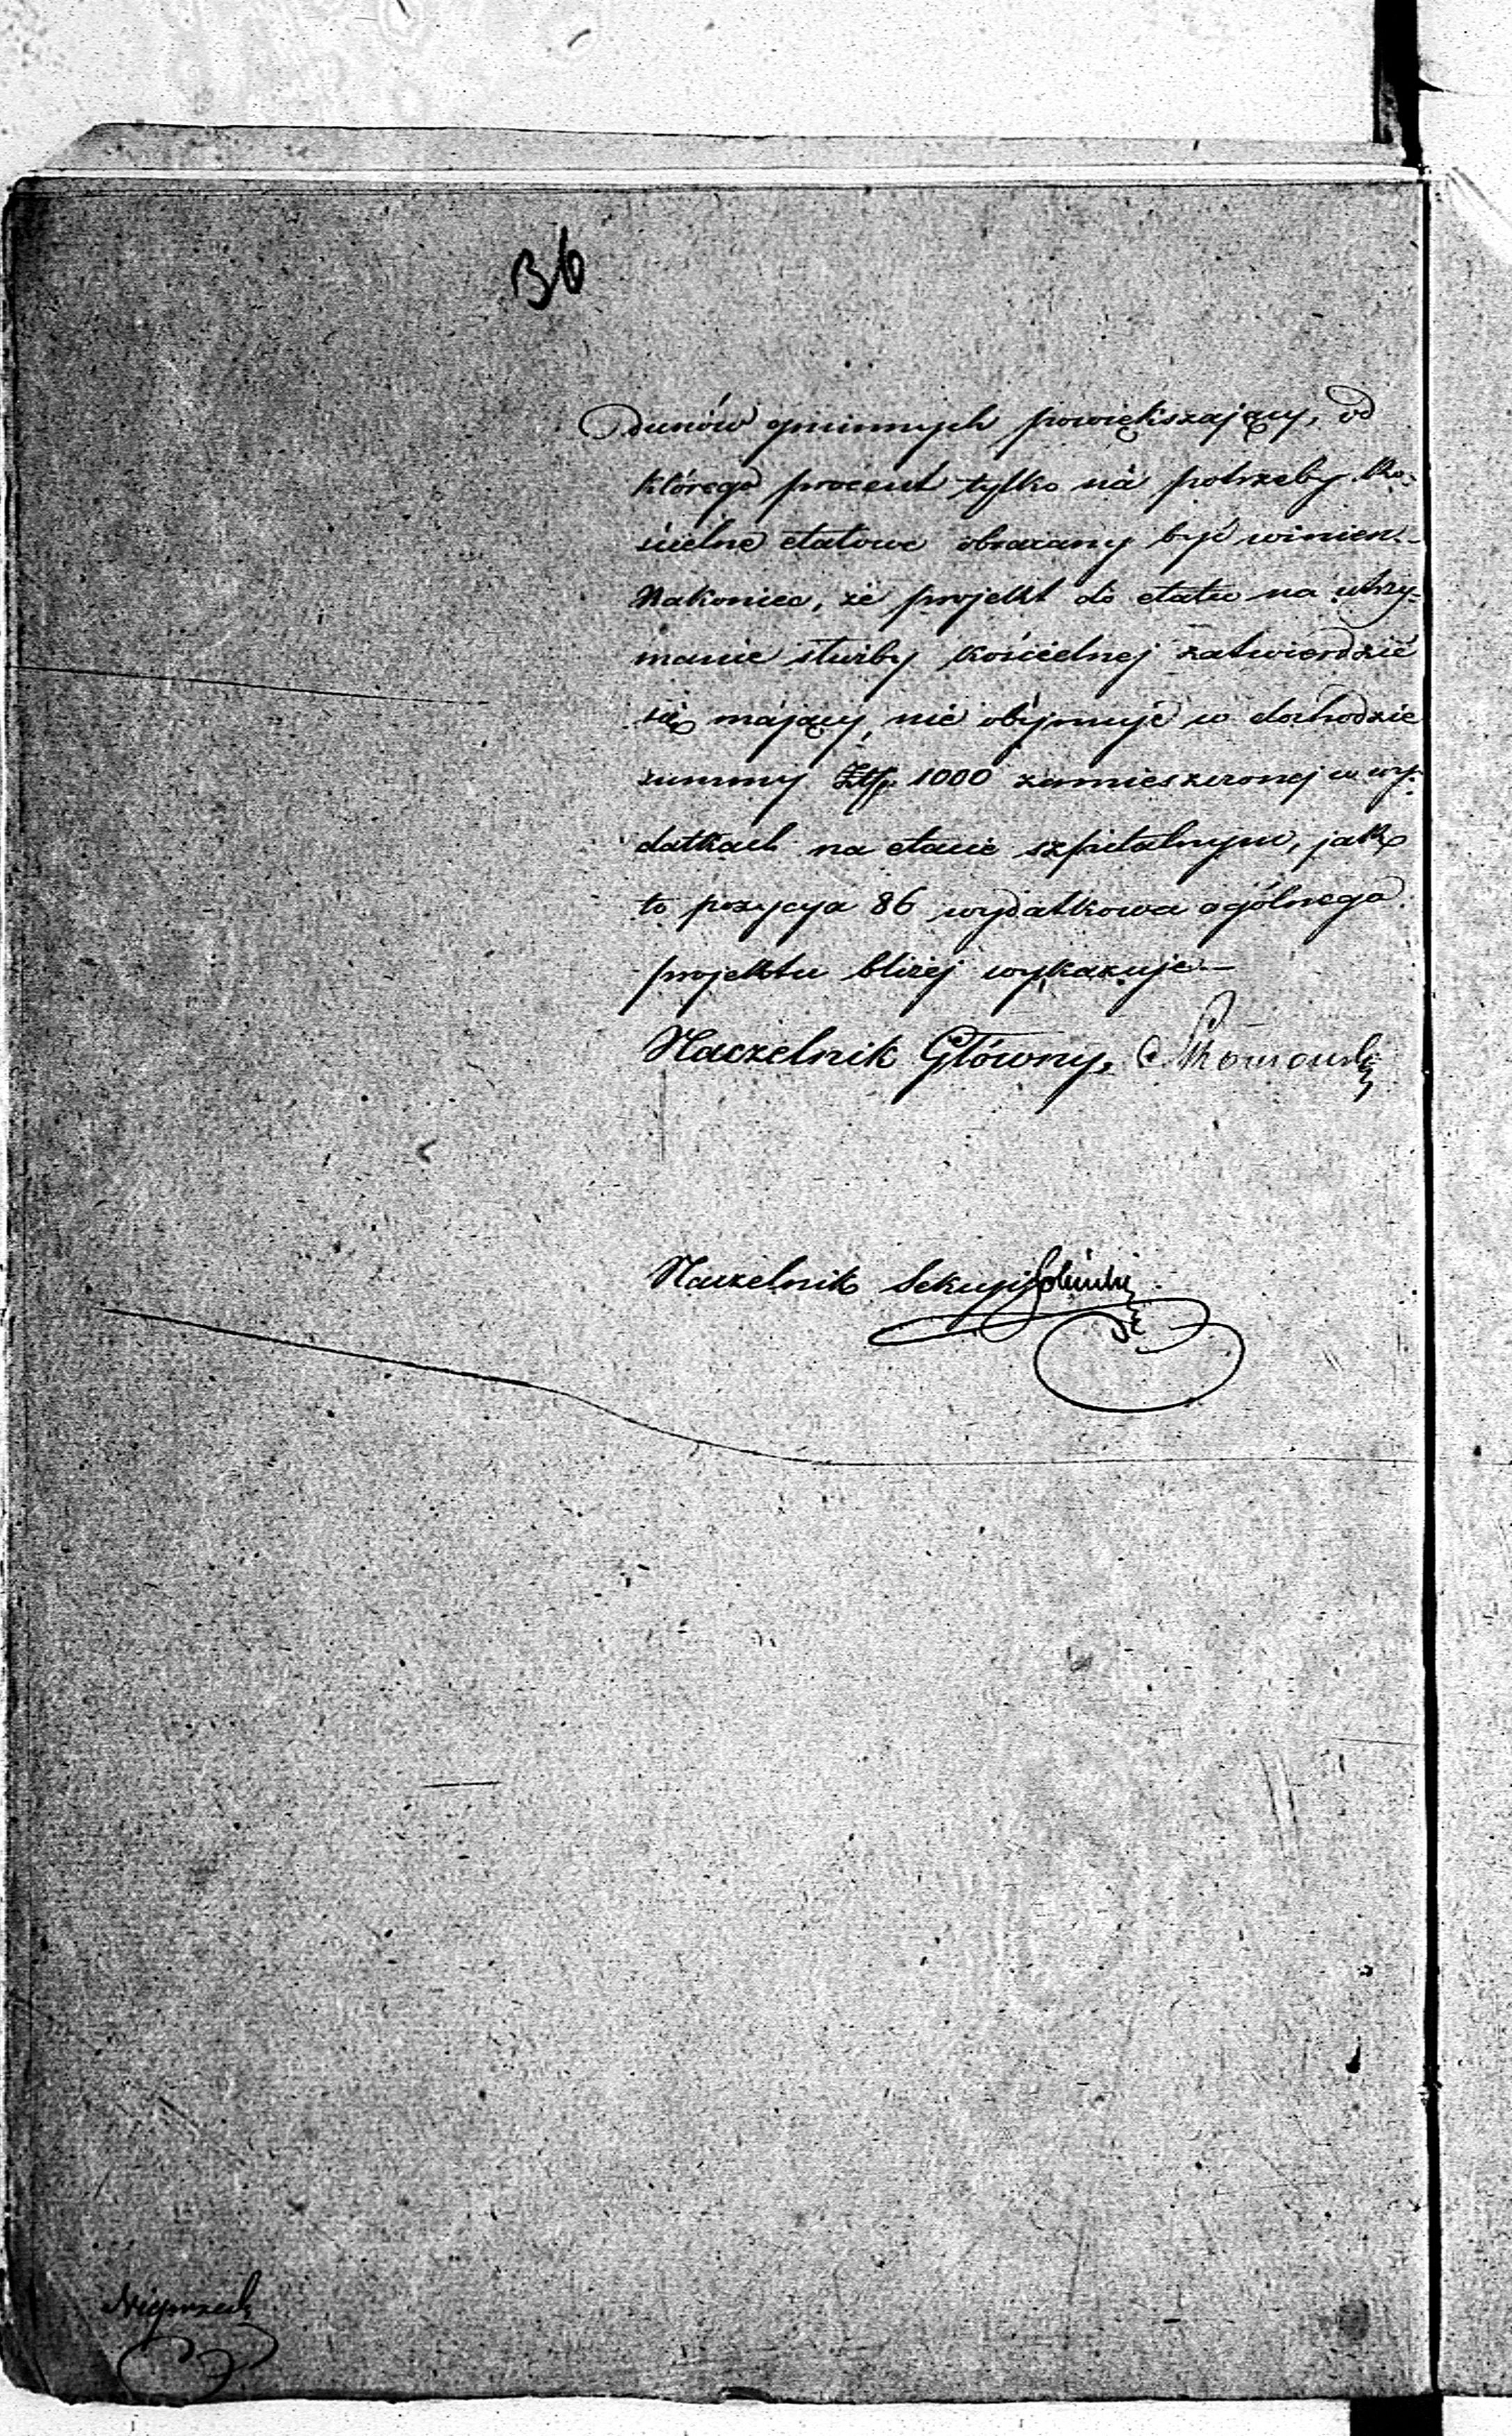 36
dunów gminnych powiększający, od
którego procent tylko na potrzeby Ko-
ścielne etatowe obracany być winien.-
Nakoniec, że projekt do etatu na utrzy-
manie służby kościelnej zatwierdzić
się mający, nie obejmuje w dochodzie
summy Złp. 1000 zamieszczonej w wy-
datkach na etacie szpitalnym, jak
to pozycya 86 wydatkowa ogólnego
projektu bliżej wykazuje.—
Naczelnik Główny,
Naczelnik Sekcyi